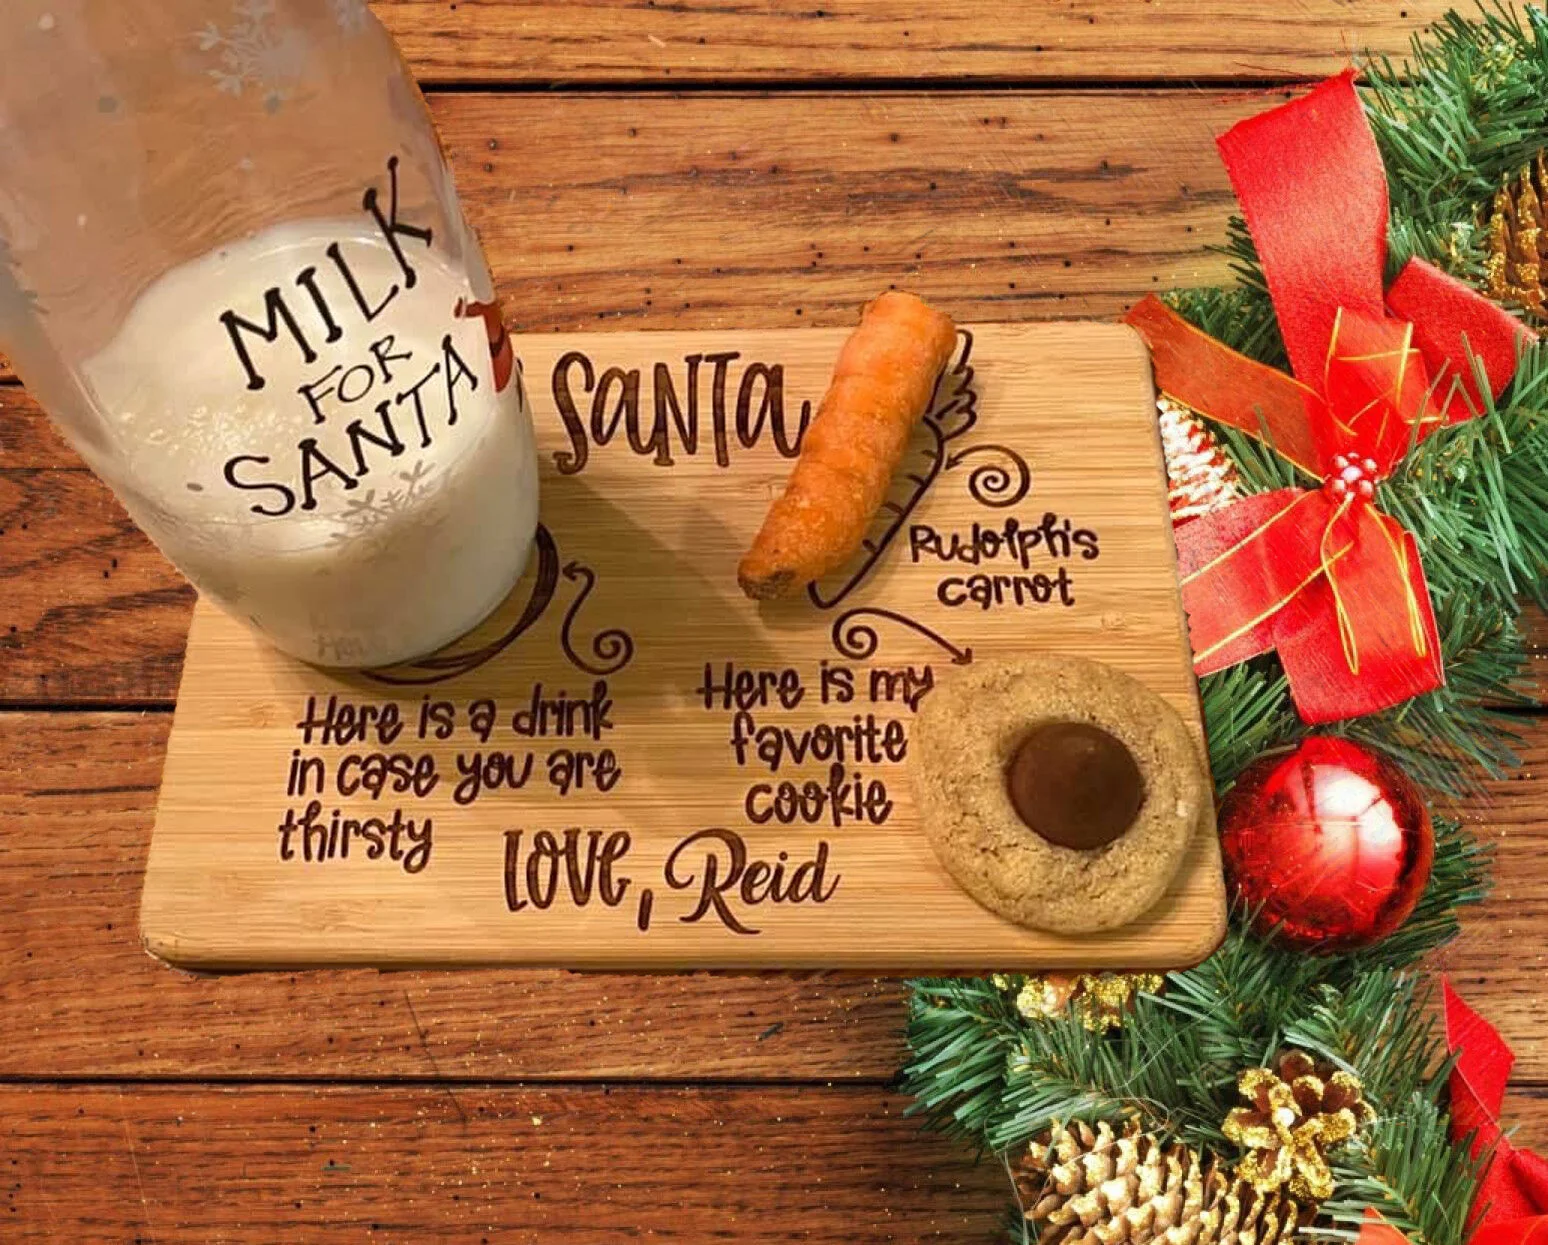 MILK
FOR
SANTA
SANTA
Rudolph's
carrot
Here is a drink
in case you are
thirsty
Here is my
favorite
cookie
LOVE, Reid